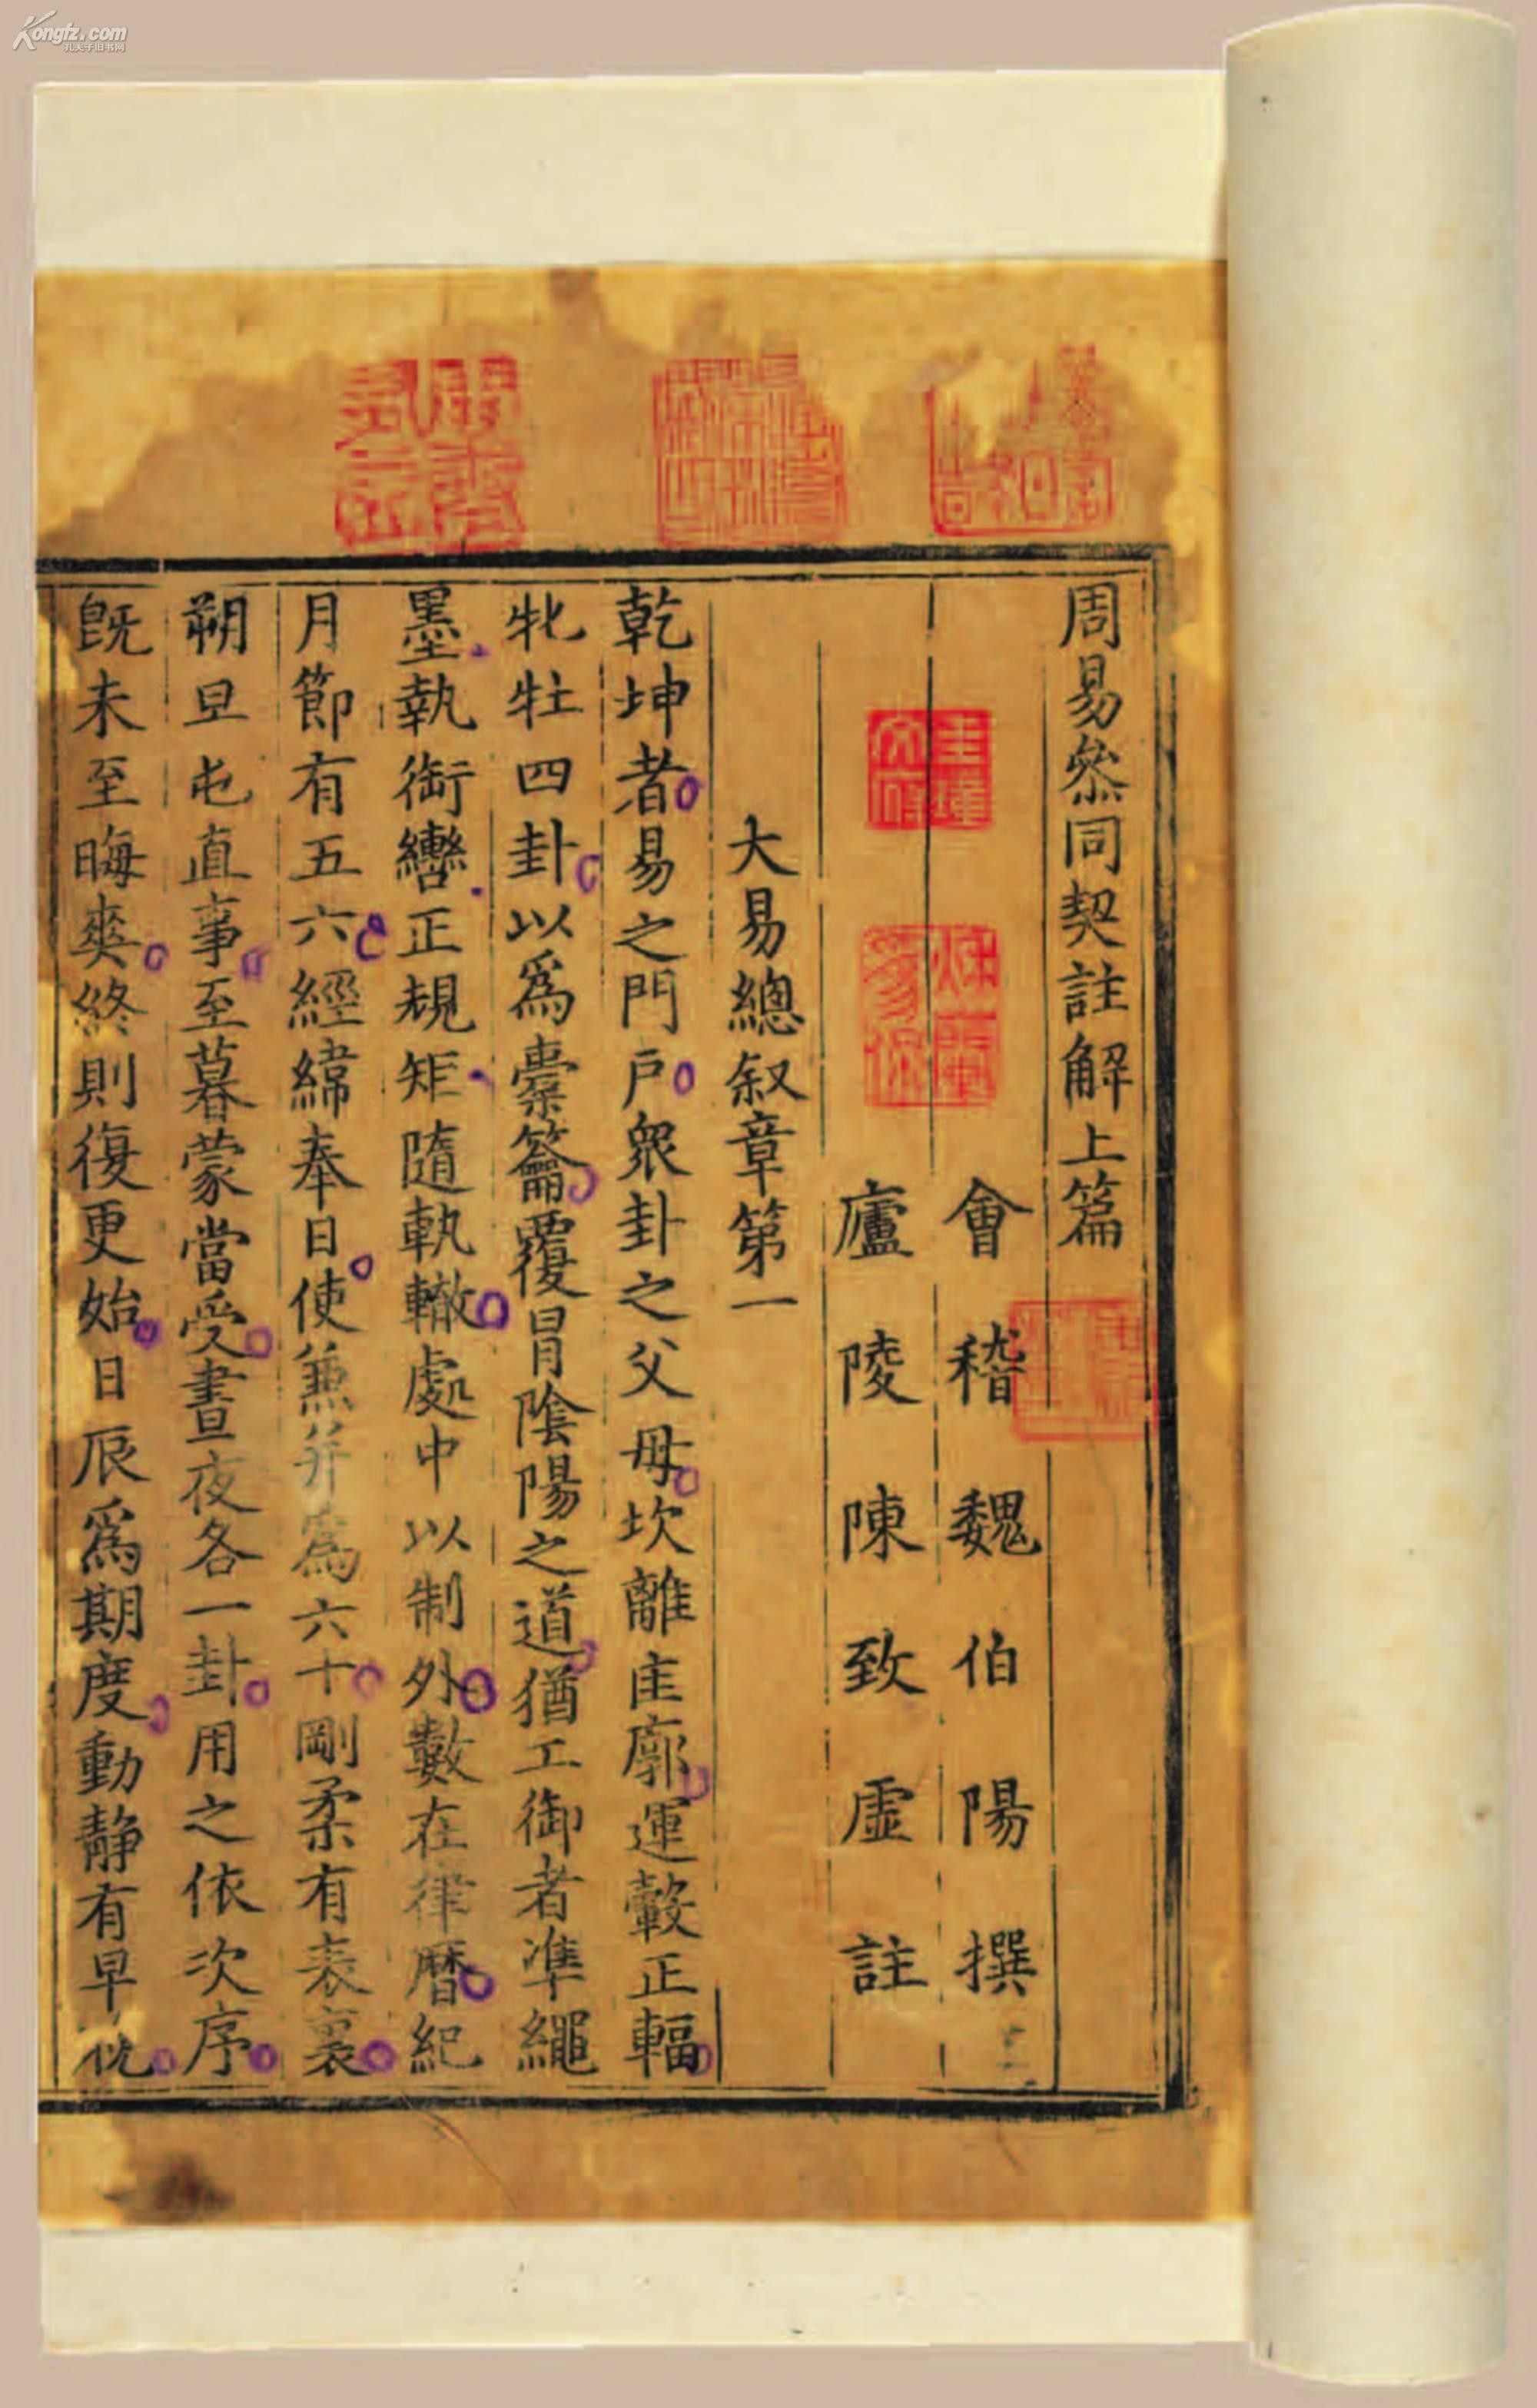 Kongfz.com
孔夫子旧书网
周易叅同契註解上篇
會稽魏伯陽撰
廬陵陳致虛註
大易總叙章第一
乾坤者易之門戶衆卦之父母坎離匡廓運轂正輻
牝牡四卦以爲橐籥覆冒陰陽之道猶工御者準繩
墨執銜轡正規矩隨軌轍處中以制外數在律曆紀
月節有五六經緯奉日使兼并爲六十剛柔有表裏
朔旦屯直事至暮蒙當受晝夜各一卦用之依次序
旣未至晦爽終則復更始日辰爲期度動靜有早